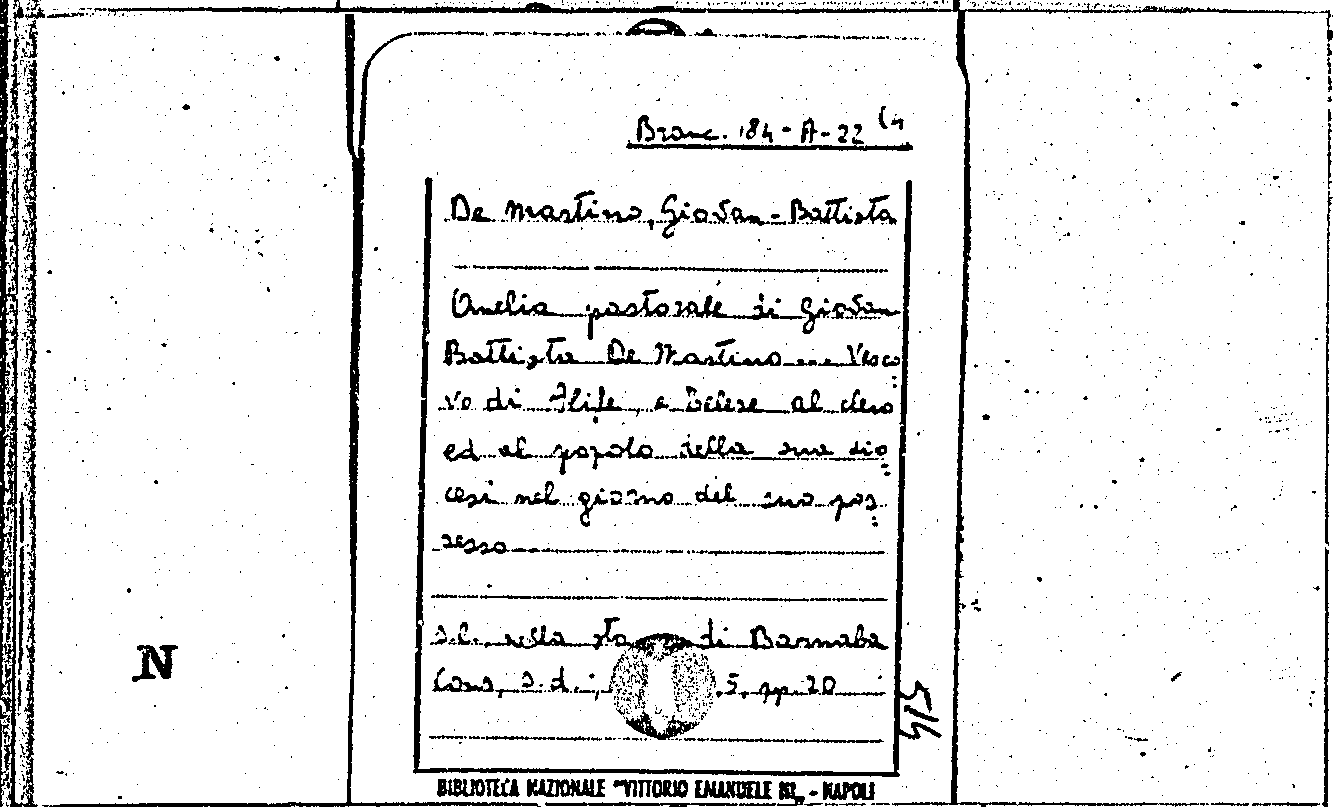 Branc. 184 - A - 22 (4
De Martino, Giovan - Battista
Omelia pastorale di Giovan
Battista De Martino ... Vesco
vo di Alife e Telese al clero
ed al popolo della sua dio
cesi nel giorno del suo pos
sesso
s.l. nella di Barnaba
Cons, s.d., 5. pp. 20
514
N
BIBLIOTECA NAZIONALE "VITTORIO EMANUELE III" - NAPOLI